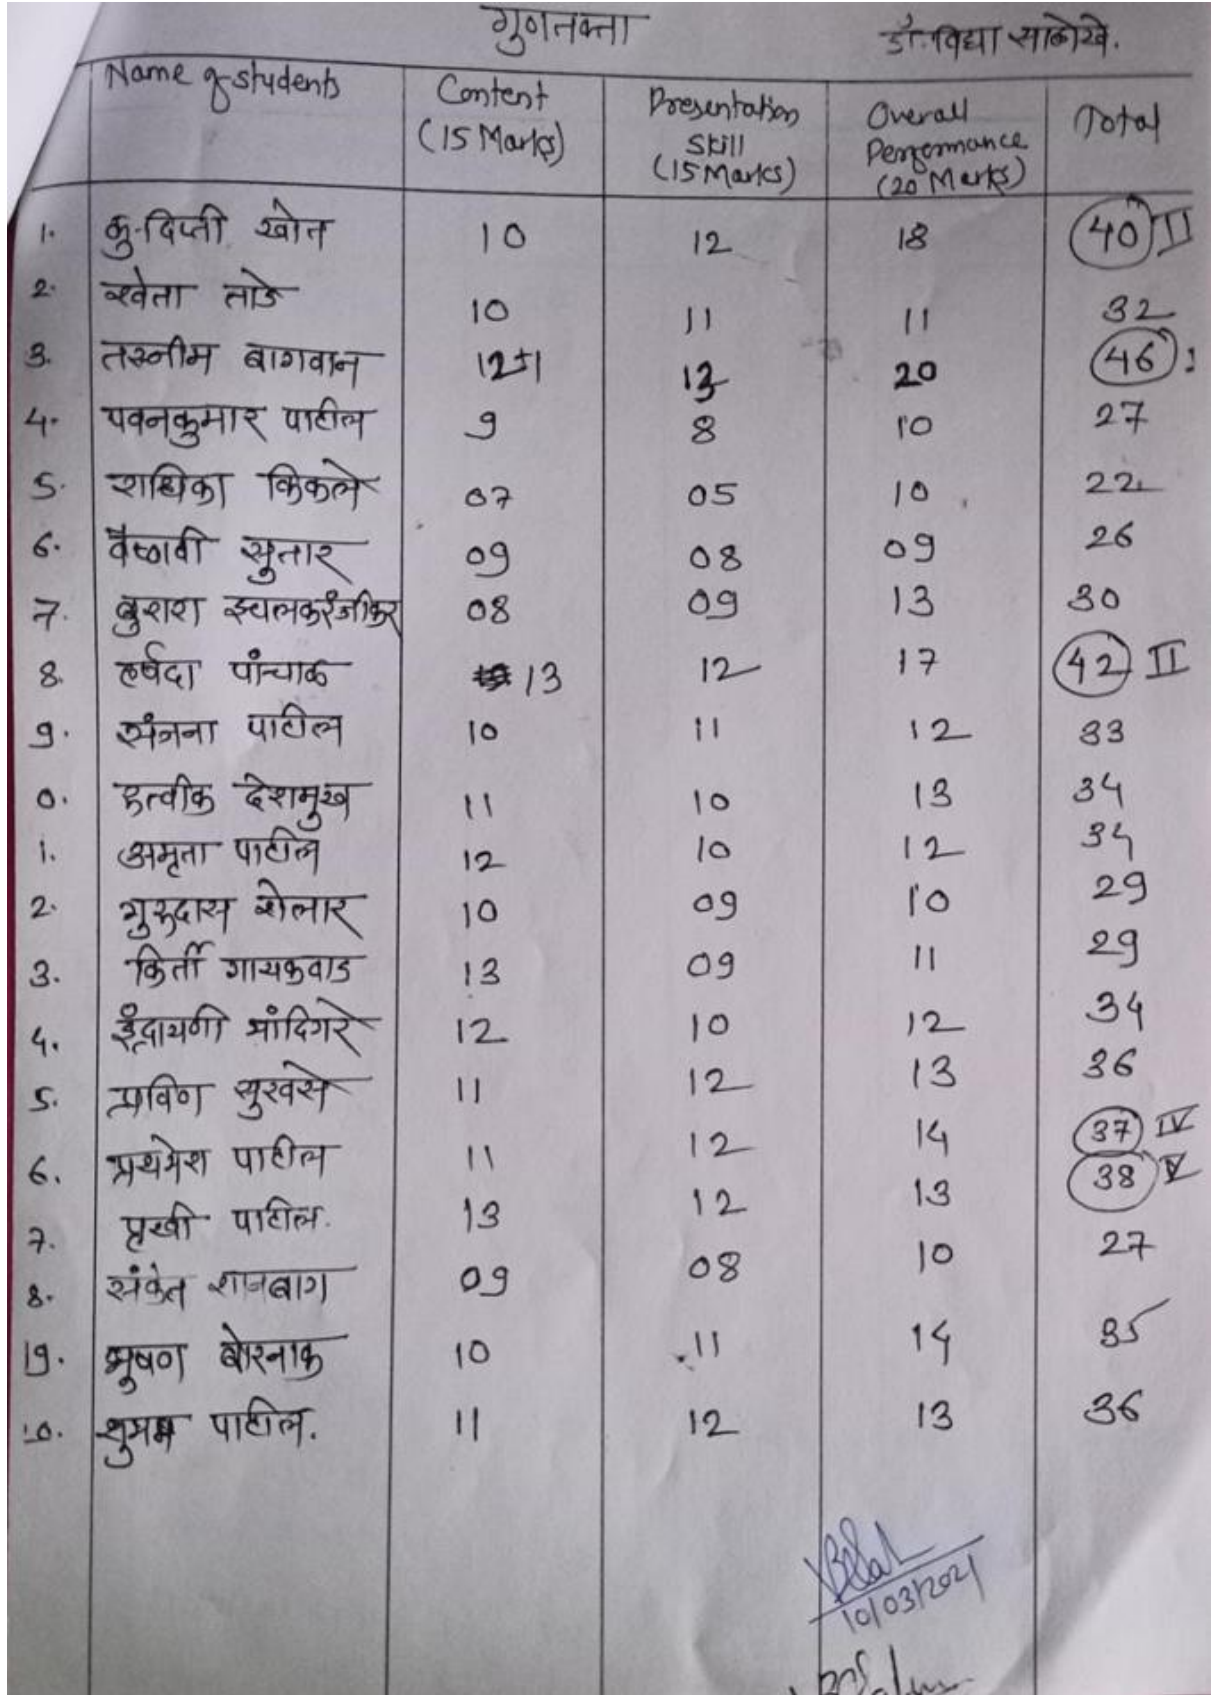 गुणतक्ता
डॉ. विद्या साळोखे.
Name of students Content (15 Marks) Presentation Skill (15 Marks) Overall Performance (20 Marks) Total
1. कु. दिप्ती खोत 10 12 18 40 II
2. श्वेता ताडे 10 11 11 32
3. तस्नीम बागवान 12+1 13 20 46
4. पवनकुमार पाटील 9 8 10 27
5. राधिका किकले 07 05 10 22
6. वैष्णवी सुतार 09 08 09 26
7. बुशरा इचलकरंजीकर 08 09 13 30
8. हर्षदा पांचाळ 13 12 17 42 II
9. संजना पाटील 10 11 12 33
0. हृत्वीक देशमुख 11 10 13 34
1. अमृता पाटील 12 10 12 34
2. गुरुदास शेलार 10 09 10 29
3. किर्ती गायकवाड 13 09 11 29
4. इंद्रायणी मांदिगरे 12 10 12 34
5. प्रविण सुरवसे 11 12 13 36
6. प्रथमेश पाटील 11 12 14 37 IV
7. पृथ्वी पाटील. 13 12 13 38 V
8. संकेत शानबाग 09 08 10 27
19. भूषण बोरनाक 10 11 14 35
पाटील. 11 12 13 36
10/03/2021